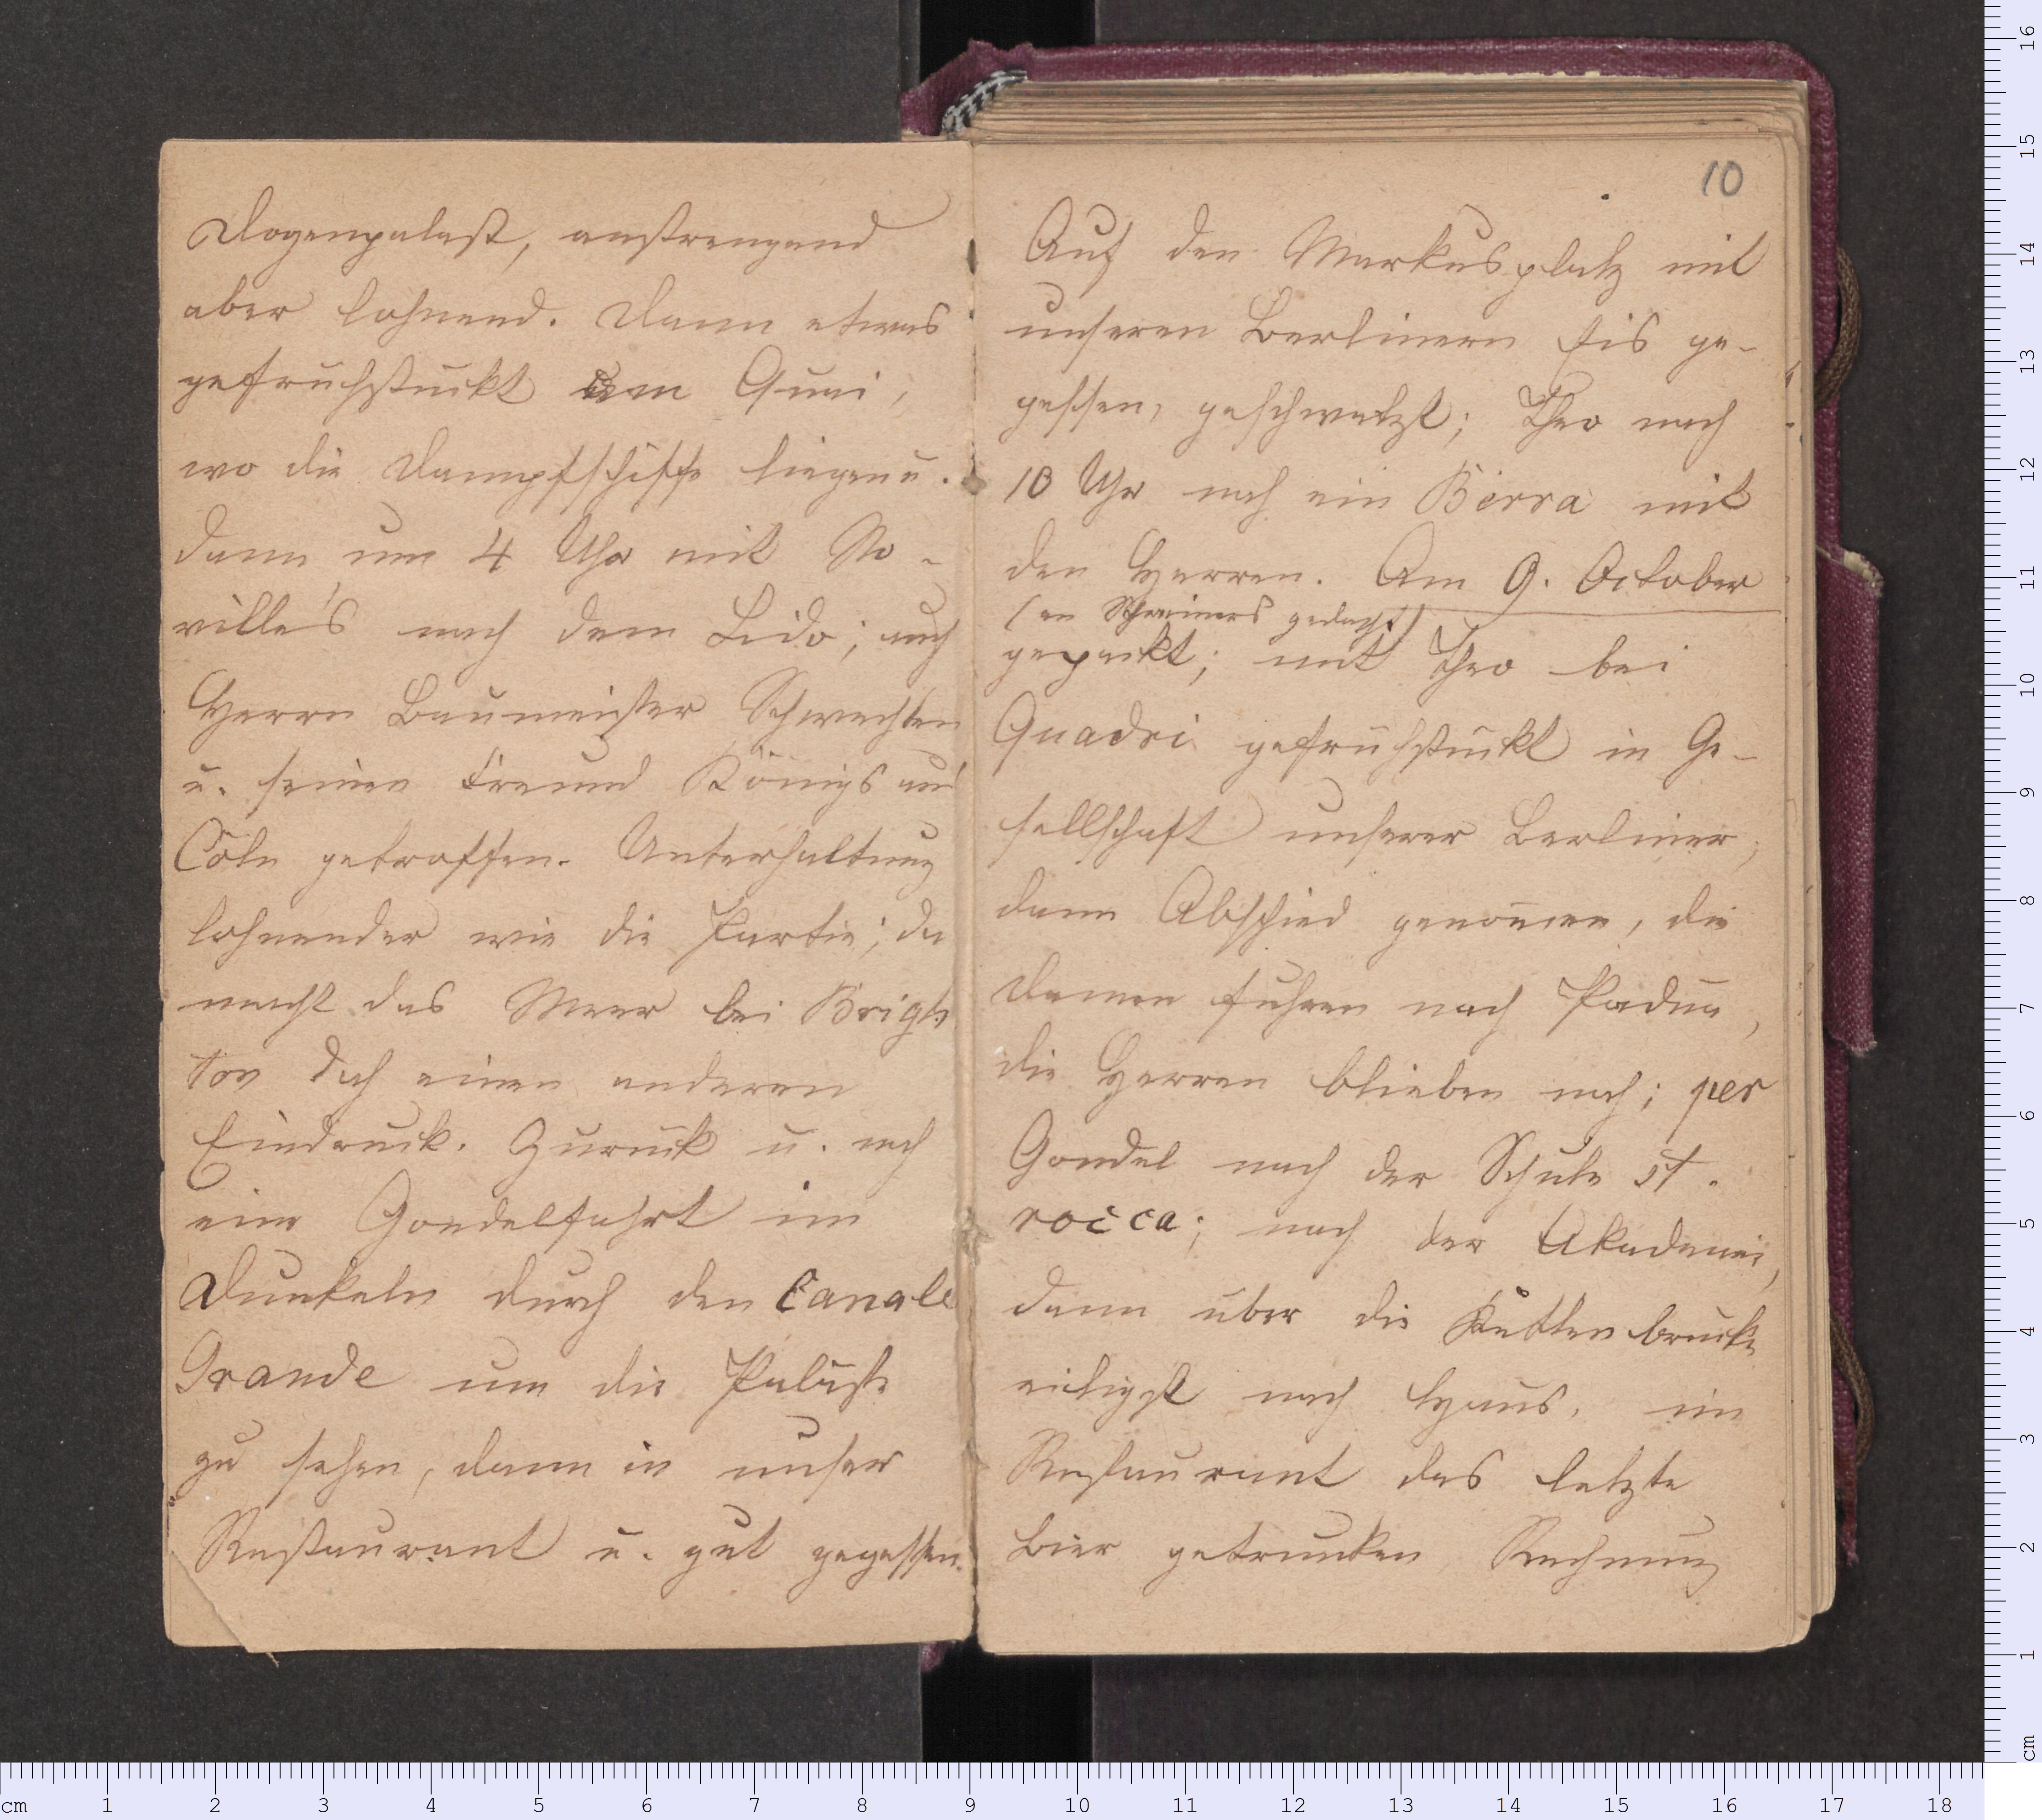 Dogenpalast, anstrengend
aber lohnend. Dann etwas
gefrühstückt am Quai,
wo die Dampfschiffe liegen u.
dann um 4 Uhr mit No-
ville's nach dem Lido; auch
Herrn Baumeister Schwechten
u. seinen Freund Königs aus
Cöln getroffen. Unterhaltung
lohnender wie die Partie; da
macht das Meer bei Brigh
ton doch einen anderen
Eindruck. Zurück u. noch
eine Gondelfahrt im
Dunkeln durch den Canale
Grande um die Paläste
zu sehen, dann in unser
Restaurant u. gut gegessen.
10
Auf den Markusplatz mit
unseren Berlinern Eis ge-
gessen, geschwatzt; Theo nach
10 Uhr noch ein Birra mit
den Herren. Am 9. October
(an Schreiners gedacht)
gepackt; mit Theo bei
Quadri gefrühstückt in Ge-
sellschaft unserer Berliner,
dann Abschied genom̄en, die
Damen fuhren nach Padua,
die Herren blieben noch; per
Gondel nach der Schule st.
rocca; nach der Akademie,
dann über die Kettenbrücke
eiligst nach Haus, im
Restaurant das letzte
Bier getrunken, Rechnung